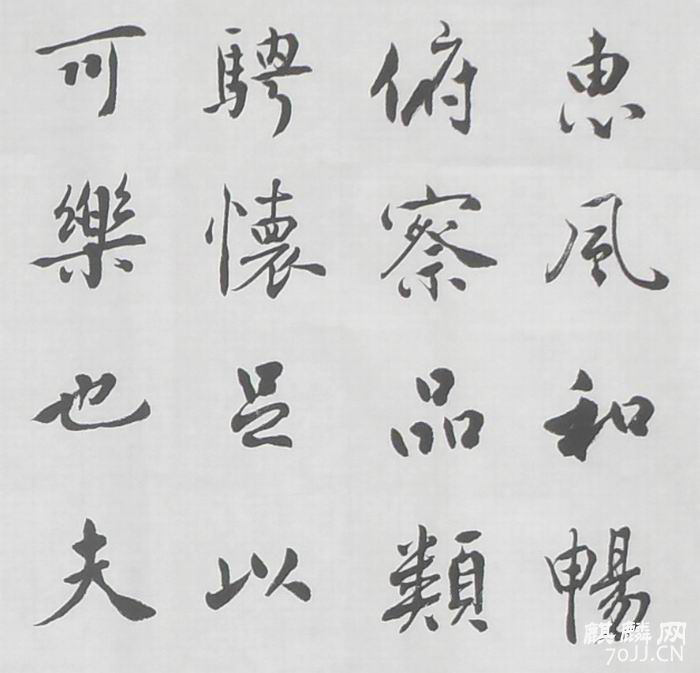 惠風和暢
俯察品類
騁懷足以
可樂也夫
麒麟网
70JJ.CN